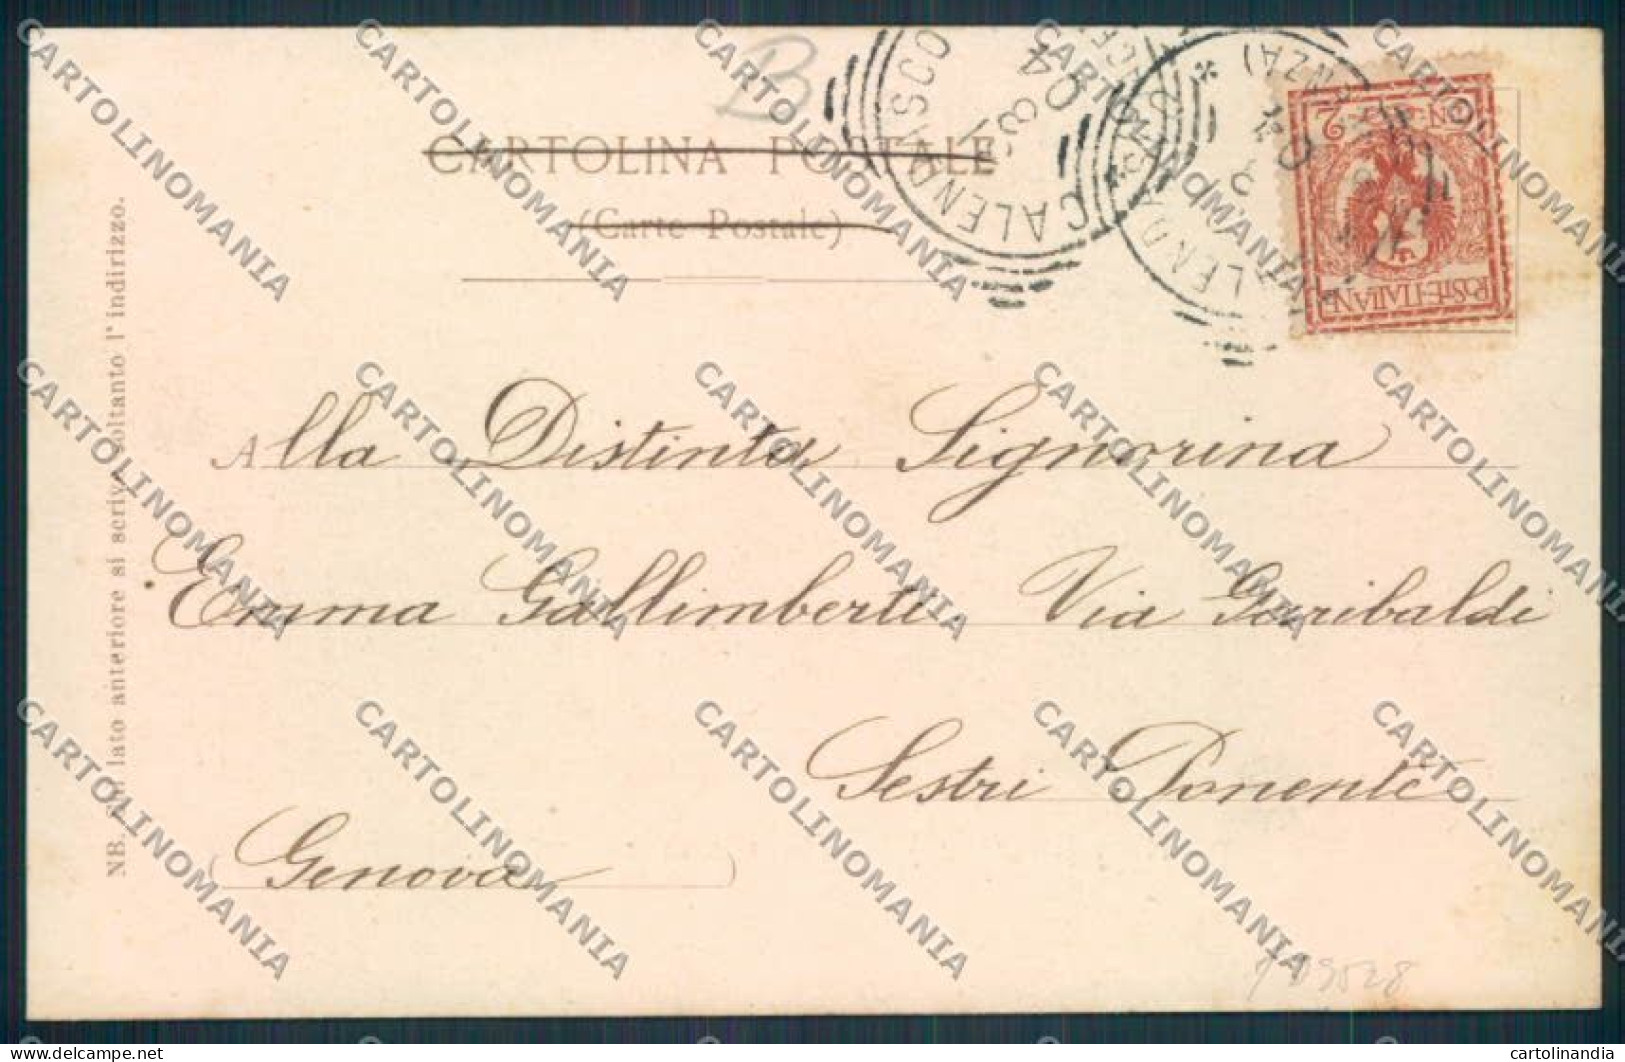 B
CARTOLINA POSTALE
(Carte Postale)
CALENDASCO
8
04
POSTE ITALIANE
2
Alla Distinta Signorina
Emma Gallimberti Via Garibaldi
Sestri Ponente
(Genova)
NB. Sul lato anteriore si scrive soltanto l'indirizzo.
CARTOLINOMANIA
www.delcampe.net
cartolinandia